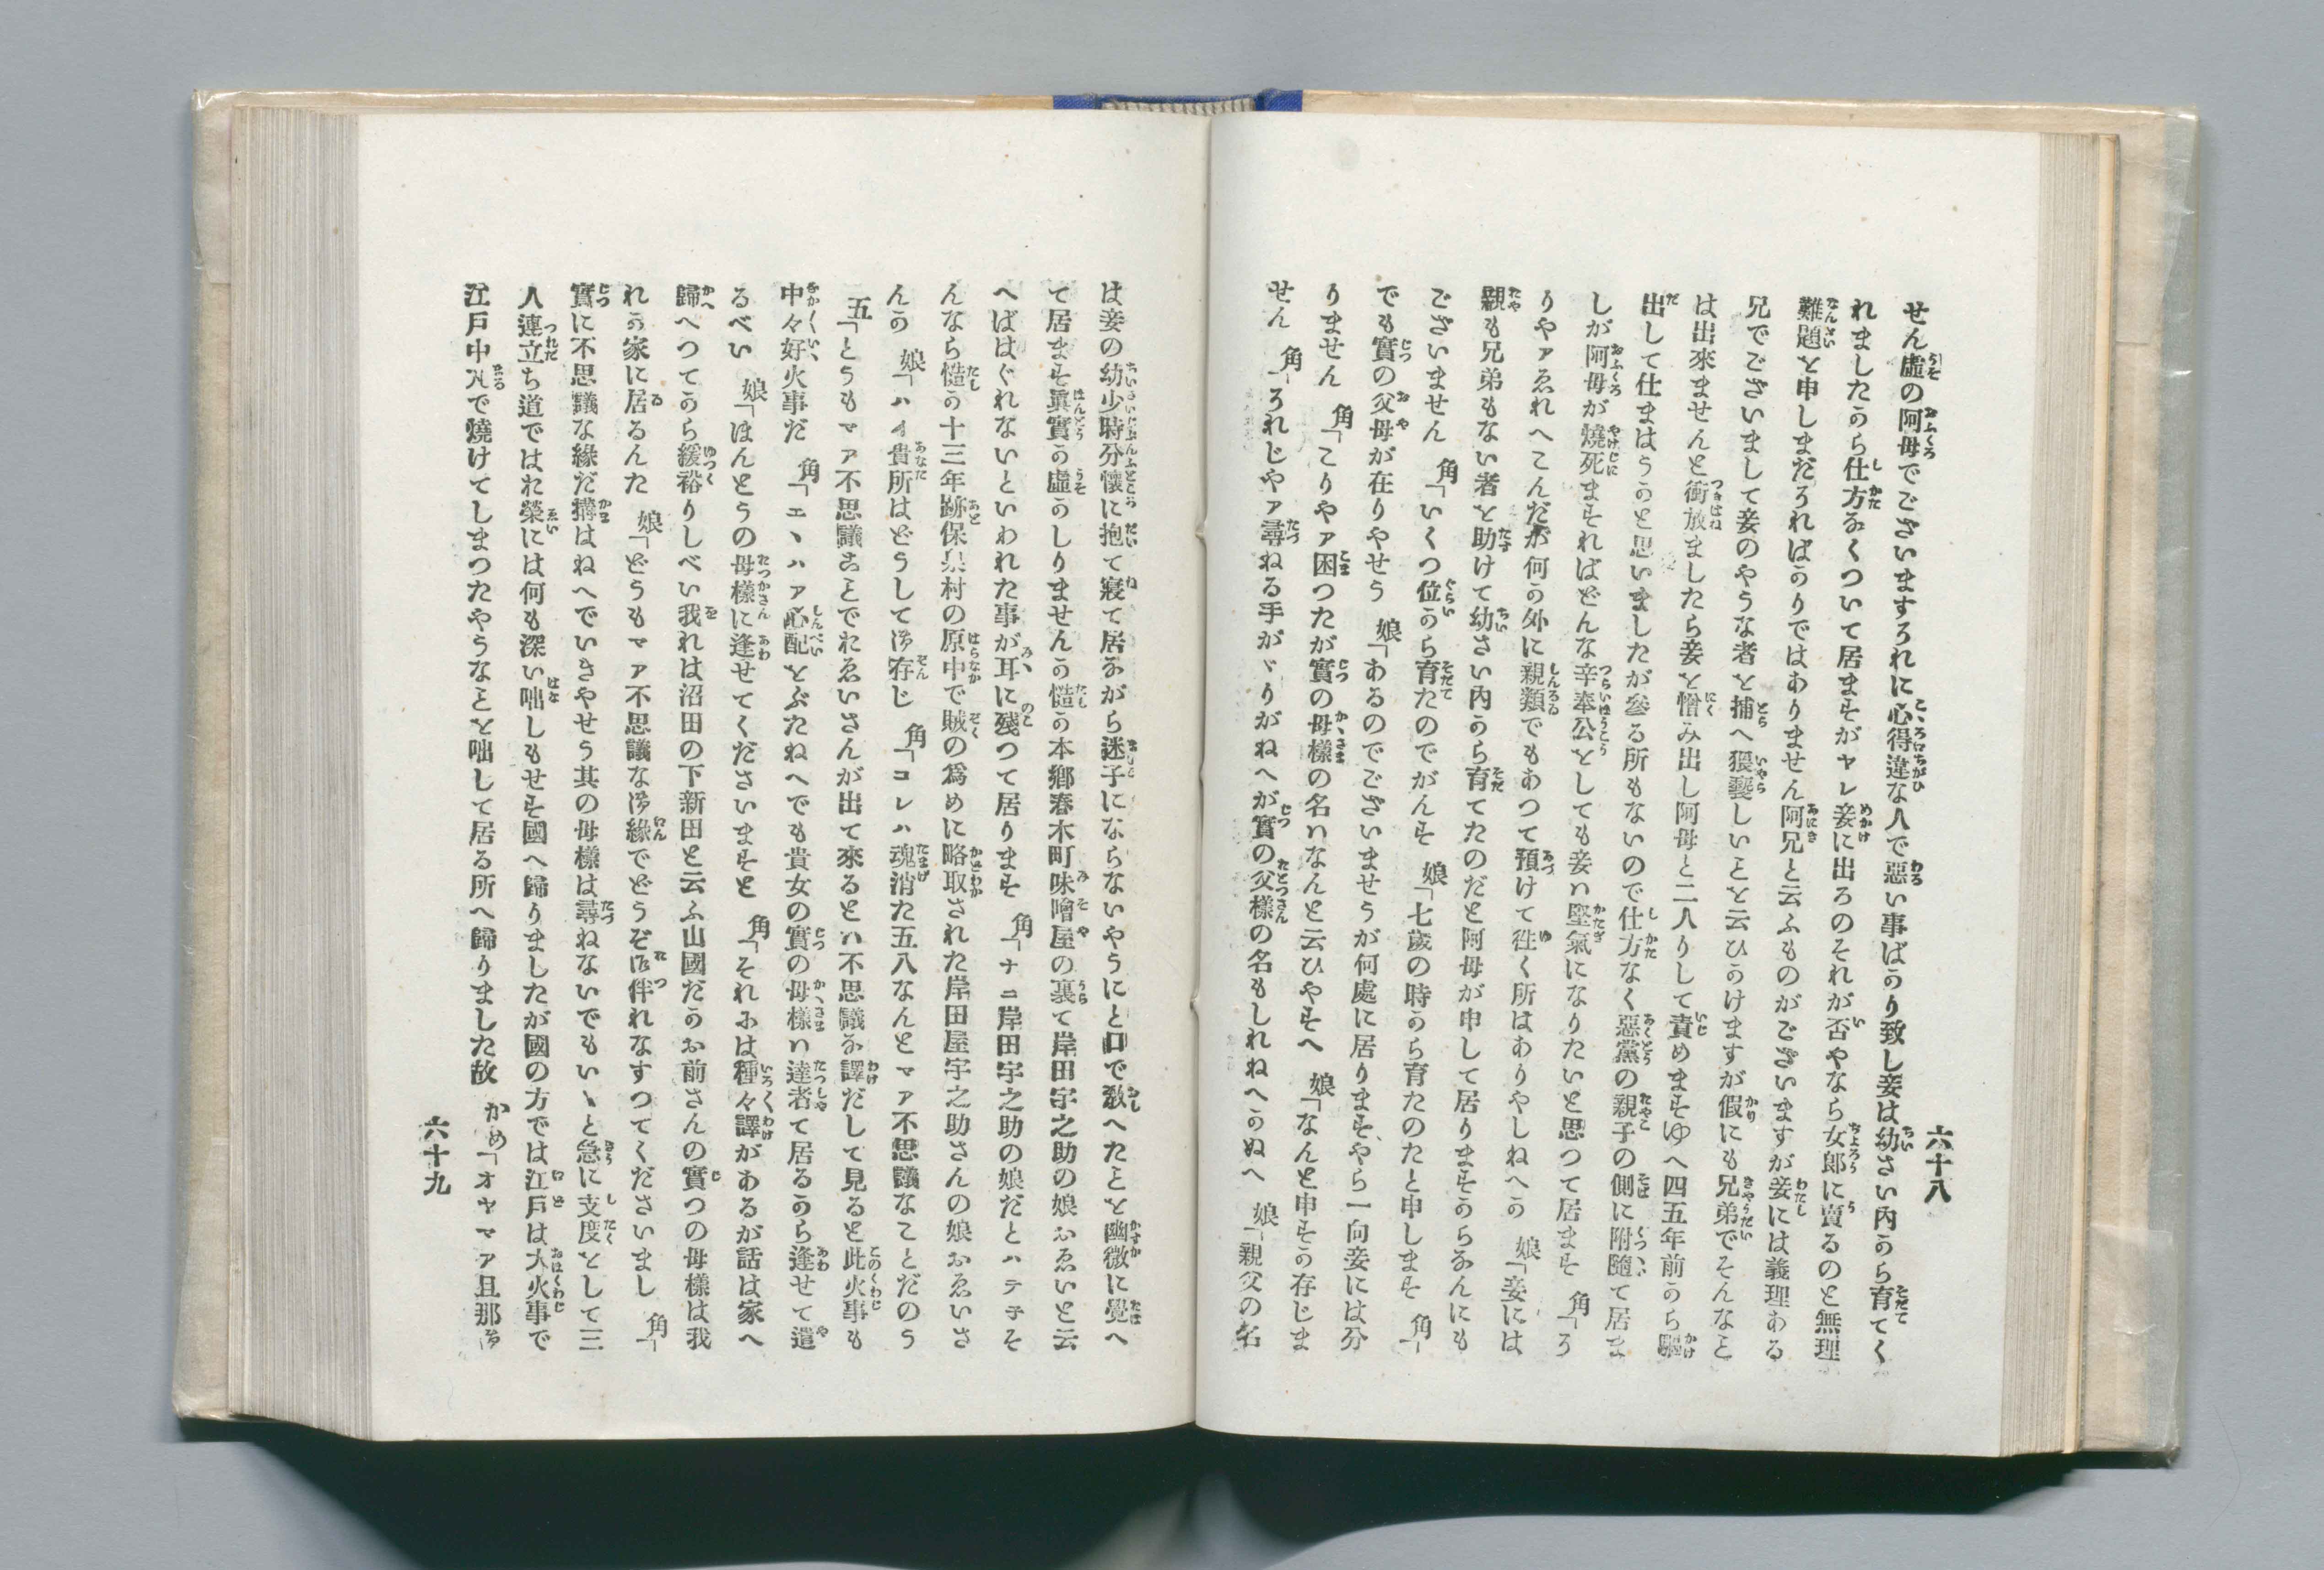 六十八
せん虛の阿母でございますろれに心得違な人で惡い事ばかり致し妾は幼さい内から育てく
れましたから仕方なくついて居ますがヤレ妾に出ろのそれが否やなら女郎に賣るのと無理
難題と申しまだろればかりではありません阿兄と云ふものがございますが妾には義理ある
兄でございまして妾のやうな者と捕へ猥褻しいことを云ひかけますが假にも兄弟でそんなこと
は出來ませんと衝放ましたら妾と憎み出し阿母と二人りして責めますゆへ四五年前から驅
出して仕まはうかと思いましたが參る所もないので仕方なく惡黨の親子の側に附隨て居ま
しが阿母が燒死ますればどんな辛奉公としても妾ハ堅氣になりたいと思つて居ます 角「ろ
りやァゑれへこんだが何か外に親類でもあつて預けて徃く所はありやしねへか 娘「妾には
親も兄弟もない者と助けて幼さい內から育てたのだと阿母が申して居りますからなんにも
ございません 角「いくつ位から育たのでがんす 娘「七歲の時から育たのたと申します 角「
でも實の父母が在りやせう 娘「あるのでございませうが何處に居りますやら一向妾には分
りません 角「こりやァ困つたが實の母樣の名ハなんと云ひやすへ 娘「なんと申すか存じま
せん 角「ろれじやァ尋ねる手がゞりがねへが實の父樣の名もしれねへかぬへ 娘「親父の名
は妾の幼少時分懷に抱て寢て居ながら迷子にならないやうにと口で敎へたことを幽微に覺へ
て居ます眞實か虛かしりませんが慥か本鄕春木町味噌屋の裏て岸田宇之助の娘おゑいと云
へばはぐれないといわれた事が耳に殘つて居ります 角「ナニ岸田宇之助の娘だとハテナそ
んなら慥か十三年跡保泉村の原中で賊の爲めに略取された岸田屋宇之助さんの娘おゑいさ
んか 娘「ハイ貴所はどうして御存じ 角「コレハ魂消た五八なんとマァ不思議なことだのう
五「どうもマァ不思議なことでおゑいさんが出て來るとハ不思議な譯だして見ると此火事も
中々好い火事だ 角「エヽハァ心配とぶたねへでも貴女の實の母樣ハ達者て居るから逢せて遣
るべい 娘「ほんとうの母樣に逢せてくださいますと 角「それには種々譯があるが話は家へ
歸へつてから緩裕りしべい我れは沼田の下新田と云ふ山國だがお前さんの實つの母樣は我
れの家に居るんた 娘「どうもマァ不思議な御緣でどうぞ御伴れなすつてくださいまし 角「
實に不思議な緣だ搆はねへでいきやせう其の母樣は尋ねないでもいゝと急に支度として三
人連立ち道ではお榮には何も深い咄しもせす國へ歸りましたが國の方では江戶は大火事で
江戶中丸で燒けてしまつたやうなことを咄して居る所へ歸りました故 かめ「オヤマァ旦那御
六十九